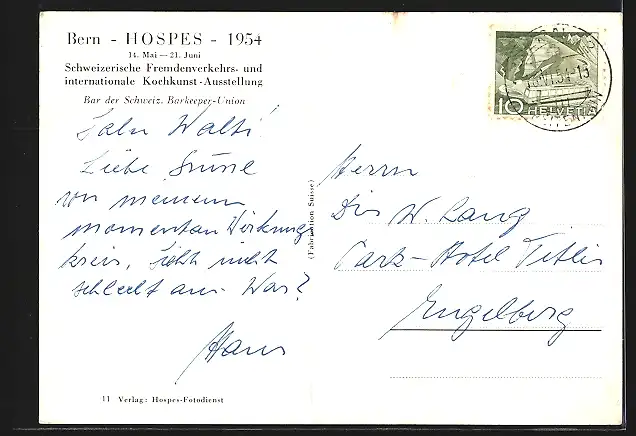 Bern - HOSPES - 1954
14. Mai — 21. Juni
Schweizerische Fremdenverkehrs- und
internationale Kochkunst-Ausstellung
Bar der Schweiz. Barkeeper-Union
Salu Walti!
Liebe Grüsse
von meinem
momentan Wirkungs
kreis, sieht nicht
schlecht aus. Was?
Hans
11 Verlag: Hospes-Fotodienst
(Fabrication Suisse)
10 HELVETIA
Herrn
Dir W. Lang
Park-Hotel Titlis
Engelberg